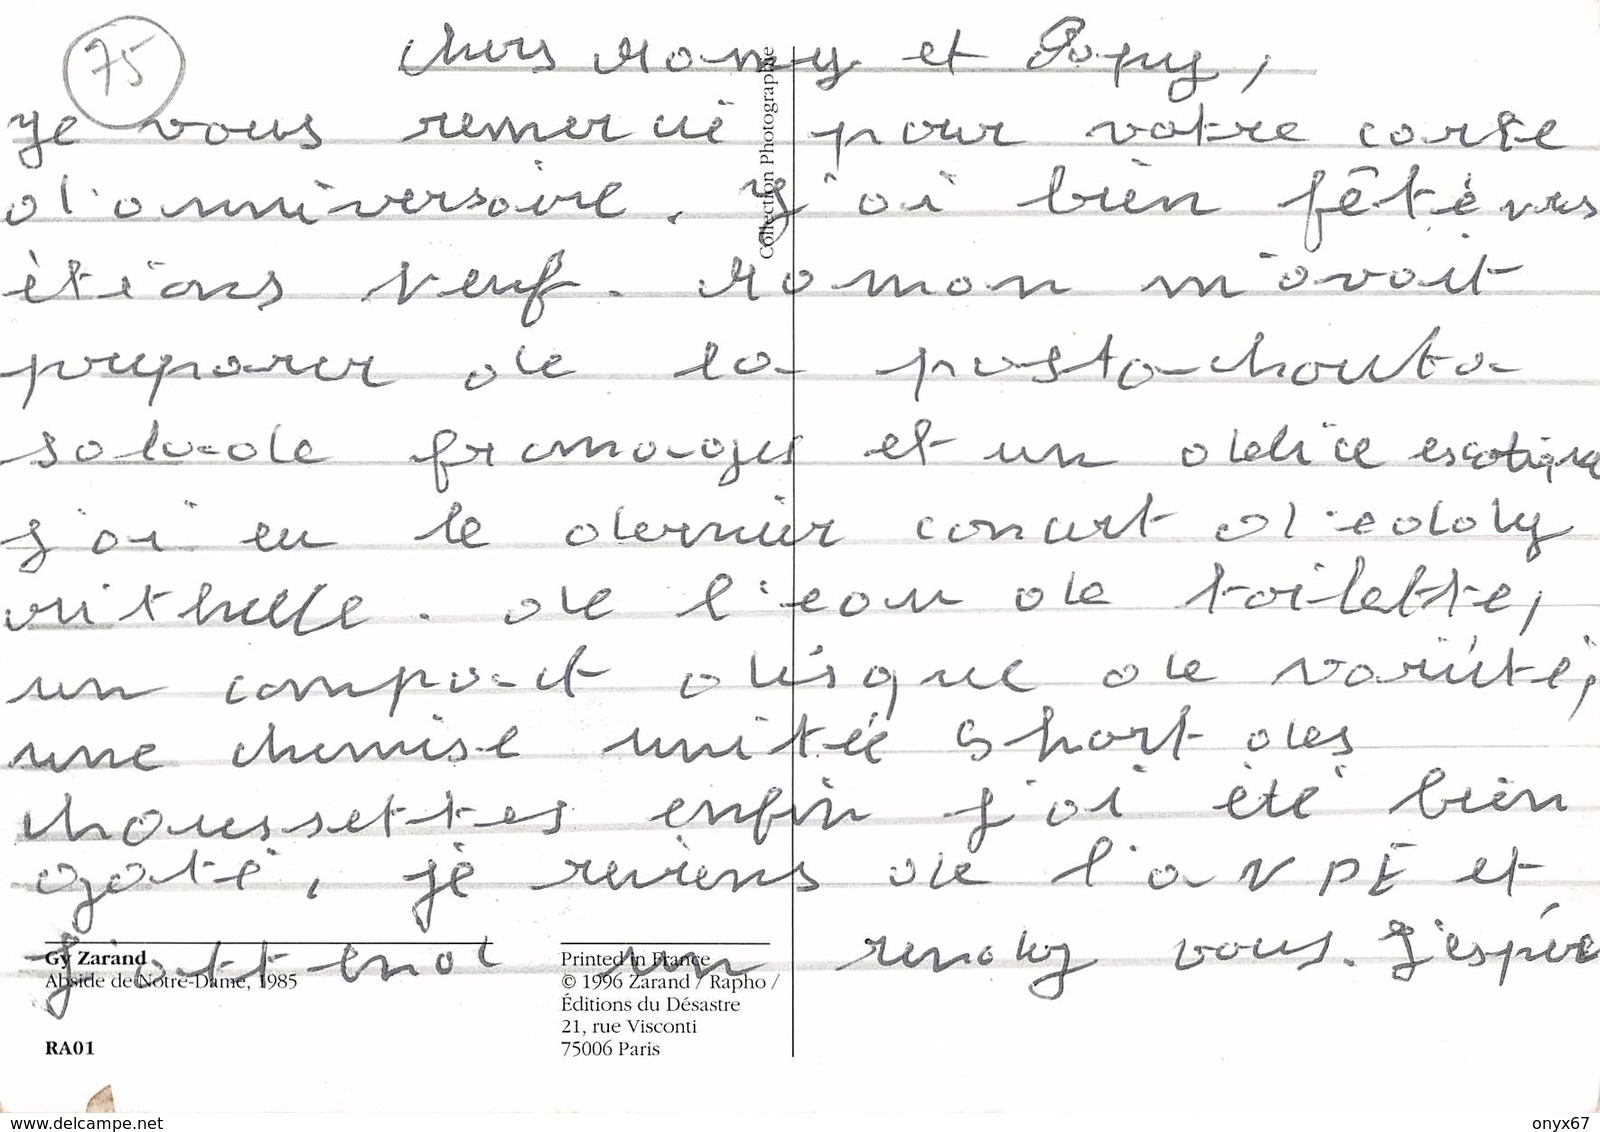 75
Chers Mamy et Papy,
je vous remercie pour votre carte
d'anniversaire. J'ai bien fêté
étions neuf. Maman m'avait
preparer de la
salade fromages et un délice
j'ai eu le dernier concert d'eddy
mithelle. de l'eau de toilette,
un compact disque de variété,
une chemise short des
choussettes enfin j'ai été bien
gaté, je reviens de l'aNPE et
j'attend un rendez vous. J'espère
Collection Photographie
Gy Zarand
Abside de Notre-Dame, 1985
RA01
Printed in France
© 1996 Zarand / Rapho /
Éditions du Désastre
21, rue Visconti
75006 Paris
www.delcampe.net
onyx67